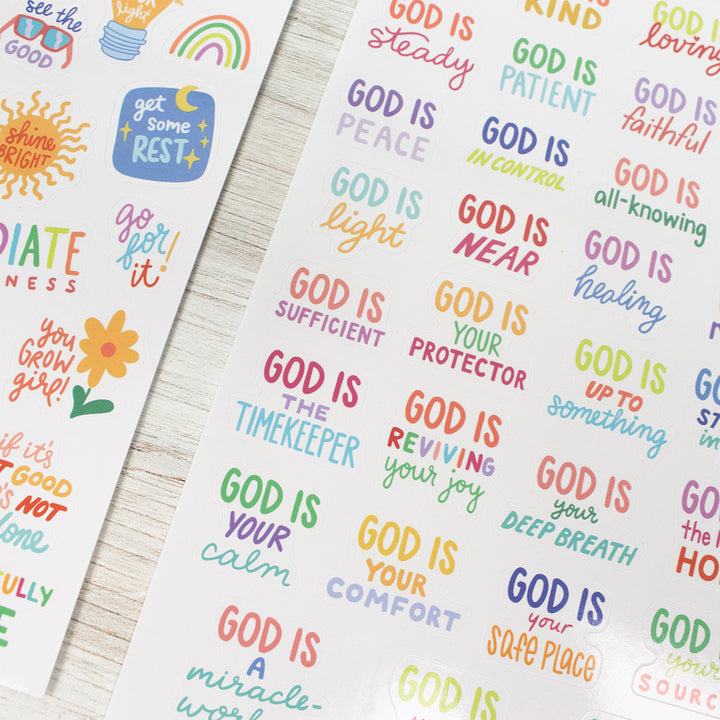 see the
GOOD
light
shine
BRIGHT
get
some
REST
go
for
it!
you
GROW
girl!
if it's
GOOD
NOT
GOD IS
steady
GOD IS
KIND
GOD IS
loving
GOD IS
PEACE
GOD IS
PATIENT
GOD IS
faithful
GOD IS
light
GOD IS
IN CONTROL
GOD IS
all-knowing
GOD IS
SUFFICIENT
GOD IS
NEAR
GOD IS
healing
GOD IS
THE
TIMEKEEPER
GOD IS
YOUR
PROTECTOR
GOD IS
UP TO
something
GOD IS
YOUR
calm
GOD IS
REVIVING
your joy
GOD IS
your
DEEP BREATH
GOD IS
A
miracle-
GOD IS
YOUR
COMFORT
GOD IS
your
SAFE PLACE
GOD IS
GOD IS
your